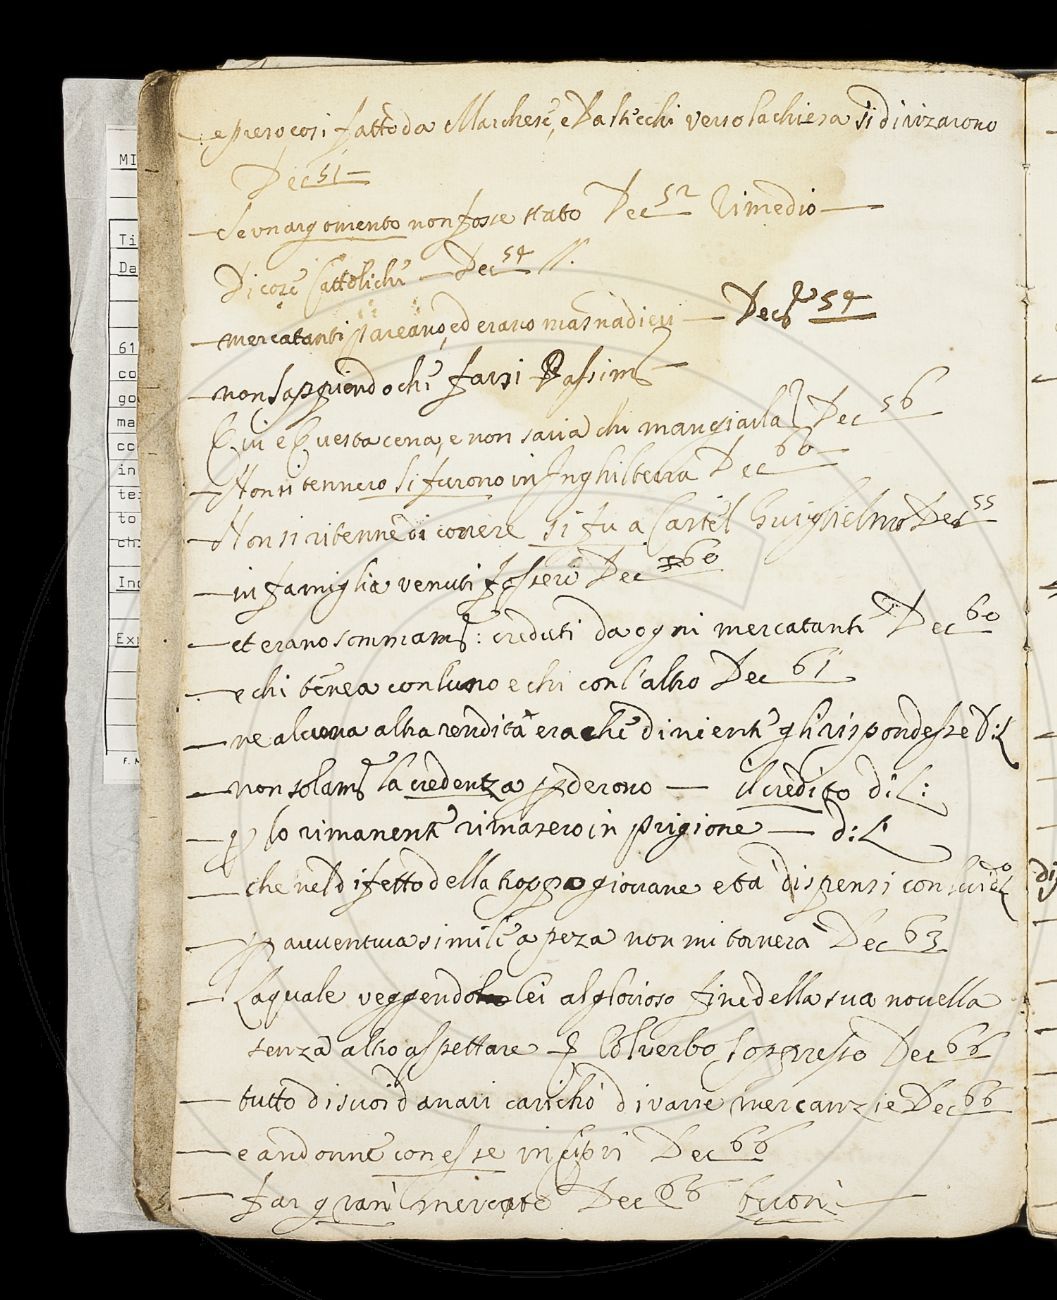 — e preso cosi fatto da Marchese, e Da Stecchi verso la chiesa si dirizarono
Dec 51 —
— se un argomento non fosse stato Dec 52 Rimedio —
Di cose Cattoliche — Dec 54 //.
— mercatanti pareano, ed erano masnadieri — Dec 54
— non sappiendo che farsi
Qui è Questa cena, e non saria chi mangiarla Dec 56
— Non si tennero si furono in Inghilterra Dec 60
— Non si ritenne di correre si fu a Castel Guiglielmo Dec 55
— in famiglia venuti fossero Dec 60
— et erano sommam: creduti da ogni mercatante Dec 60
— e chi tenea con l'uno e chi con l'altro Dec 61
— ne alcuna altra rendita era che di niente gli rispondesse D:L
— non solam la credentza perderono — il credito di L:
— p lo rimanente rimasero in prigione — d:L
— che nel difetto della troppo giovane età dispensi con lui
— p avventura simile a peza non mi tornera Dec 63
— Laquale veggendo lei al glorioso fine della sua novella
senza altro aspettare Col verbo soppresso Dec 66
— tutto di suoi danari caricho di varie mercanzie Dec 66
— e andonne con esse in Cipri Dec 66
— far gran mercato Dec 66 buon —
MI
Ti
Da
61
co
go
ma
cc
in
te
to
ch
Ind
Exp